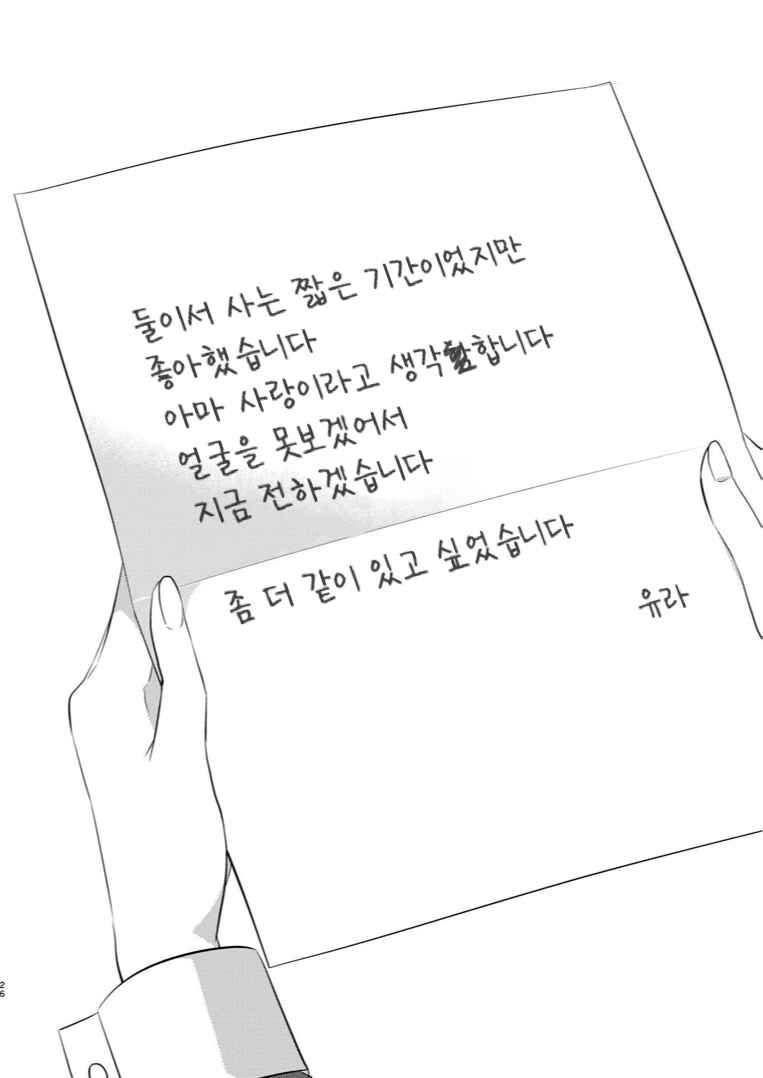 둘이서 사는 짧은 기간이었지만
좋아했습니다
아마 사랑이라고 생각합니다
얼굴을 못보겠어서
지금 전하겠습니다
좀 더 같이 있고 싶었습니다
유라
26